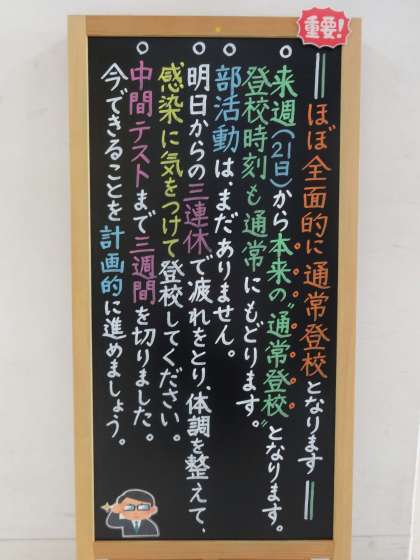 重要!
ほぼ全面的に通常登校となります
○来週(21日)から本来の“通常登校”となります。
登校時刻も通常にもどります。
○部活動は、まだありません。
○明日からの三連休で疲れをとり、体調を整えて、
感染に気をつけて登校してください。
○中間テストまで三週間を切りました。
今できることを計画的に進めましょう。